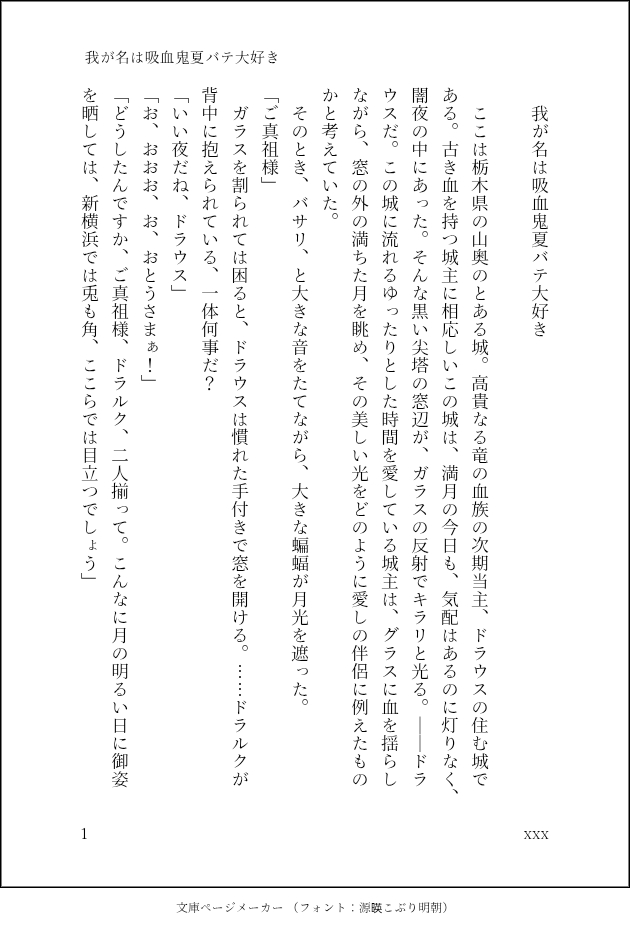 我が名は吸血鬼夏バテ大好き
我が名は吸血鬼夏バテ大好き
ここは栃木県の山奥のとある城。高貴なる竜の血族の次期当主、ドラウスの住む城で
ある。古き血を持つ城主に相応しいこの城は、満月の今日も、気配はあるのに灯りなく、
闇夜の中にあった。そんな黒い尖塔の窓辺が、ガラスの反射でキラリと光る。――ドラ
ウスだ。この城に流れるゆったりとした時間を愛している城主は、グラスに血を揺らし
ながら、窓の外の満ちた月を眺め、その美しい光をどのように愛しの伴侶に例えたもの
かと考えていた。
そのとき、バサリ、と大きな音をたてながら、大きな蝙蝠が月光を遮った。
「ご真祖様」
ガラスを割られては困ると、ドラウスは慣れた手付きで窓を開ける。……ドラルクが
背中に抱えられている、一体何事だ？
「いい夜だね、ドラウス」
「お、おおお、お、おとうさまぁ！」
「どうしたんですか、ご真祖様、ドラルク、二人揃って。こんなに月の明るい日に御姿
を晒しては、新横浜では兎も角、ここらでは目立つでしょう」
1
xxx
文庫ページメーカー（フォント：源暎こぶり明朝）